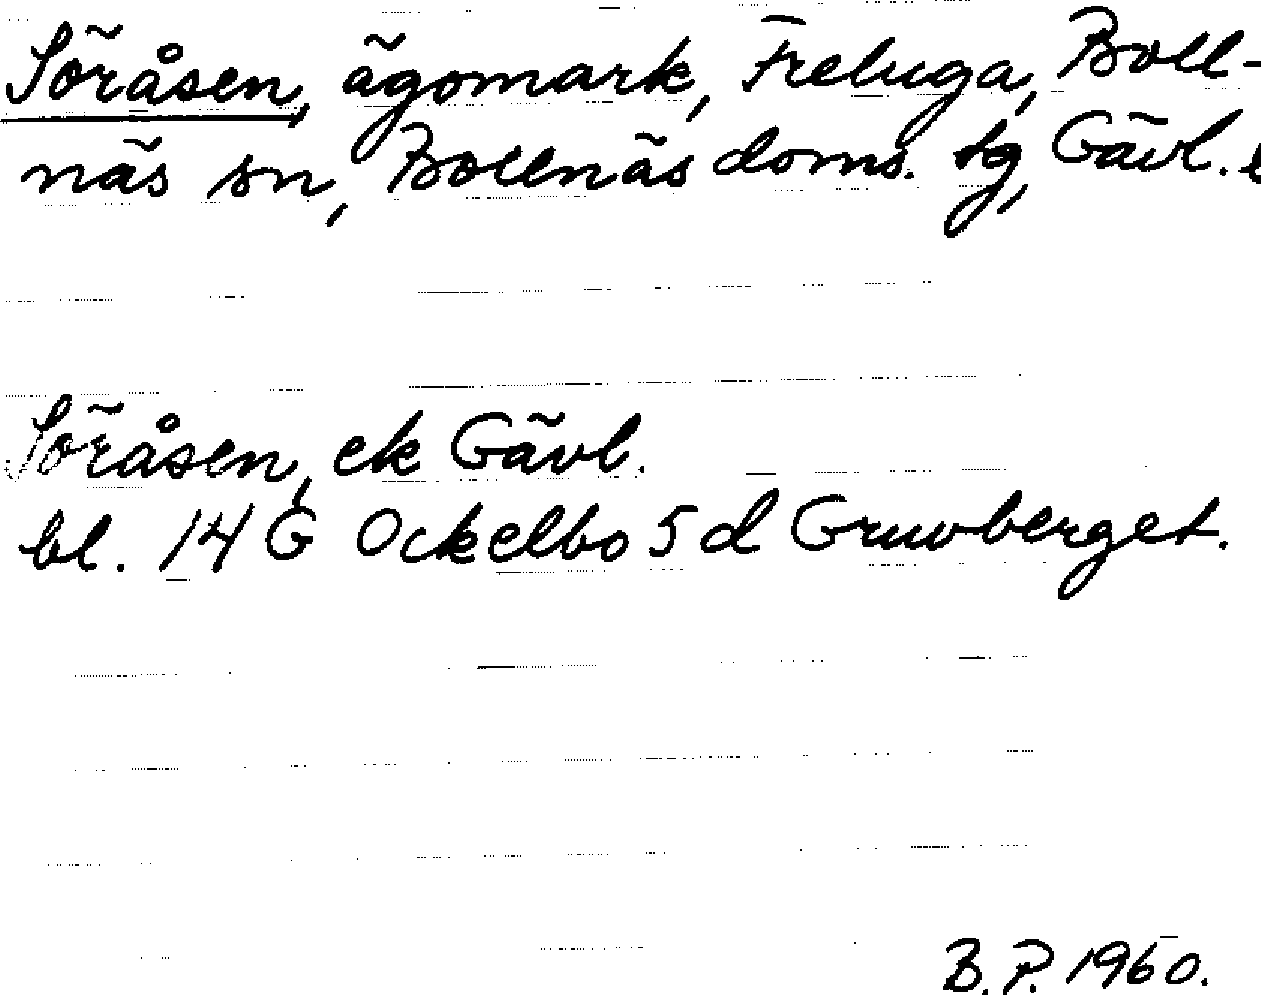 Söråsen, ägomark, Freluga, Boll-
näs sn, Bollnäs doms. tg, Gävl. l
Söråsen, ek Gävl.
bl. 14 G Ockelbo 5 d Gruvberget.
B. P. 1960.